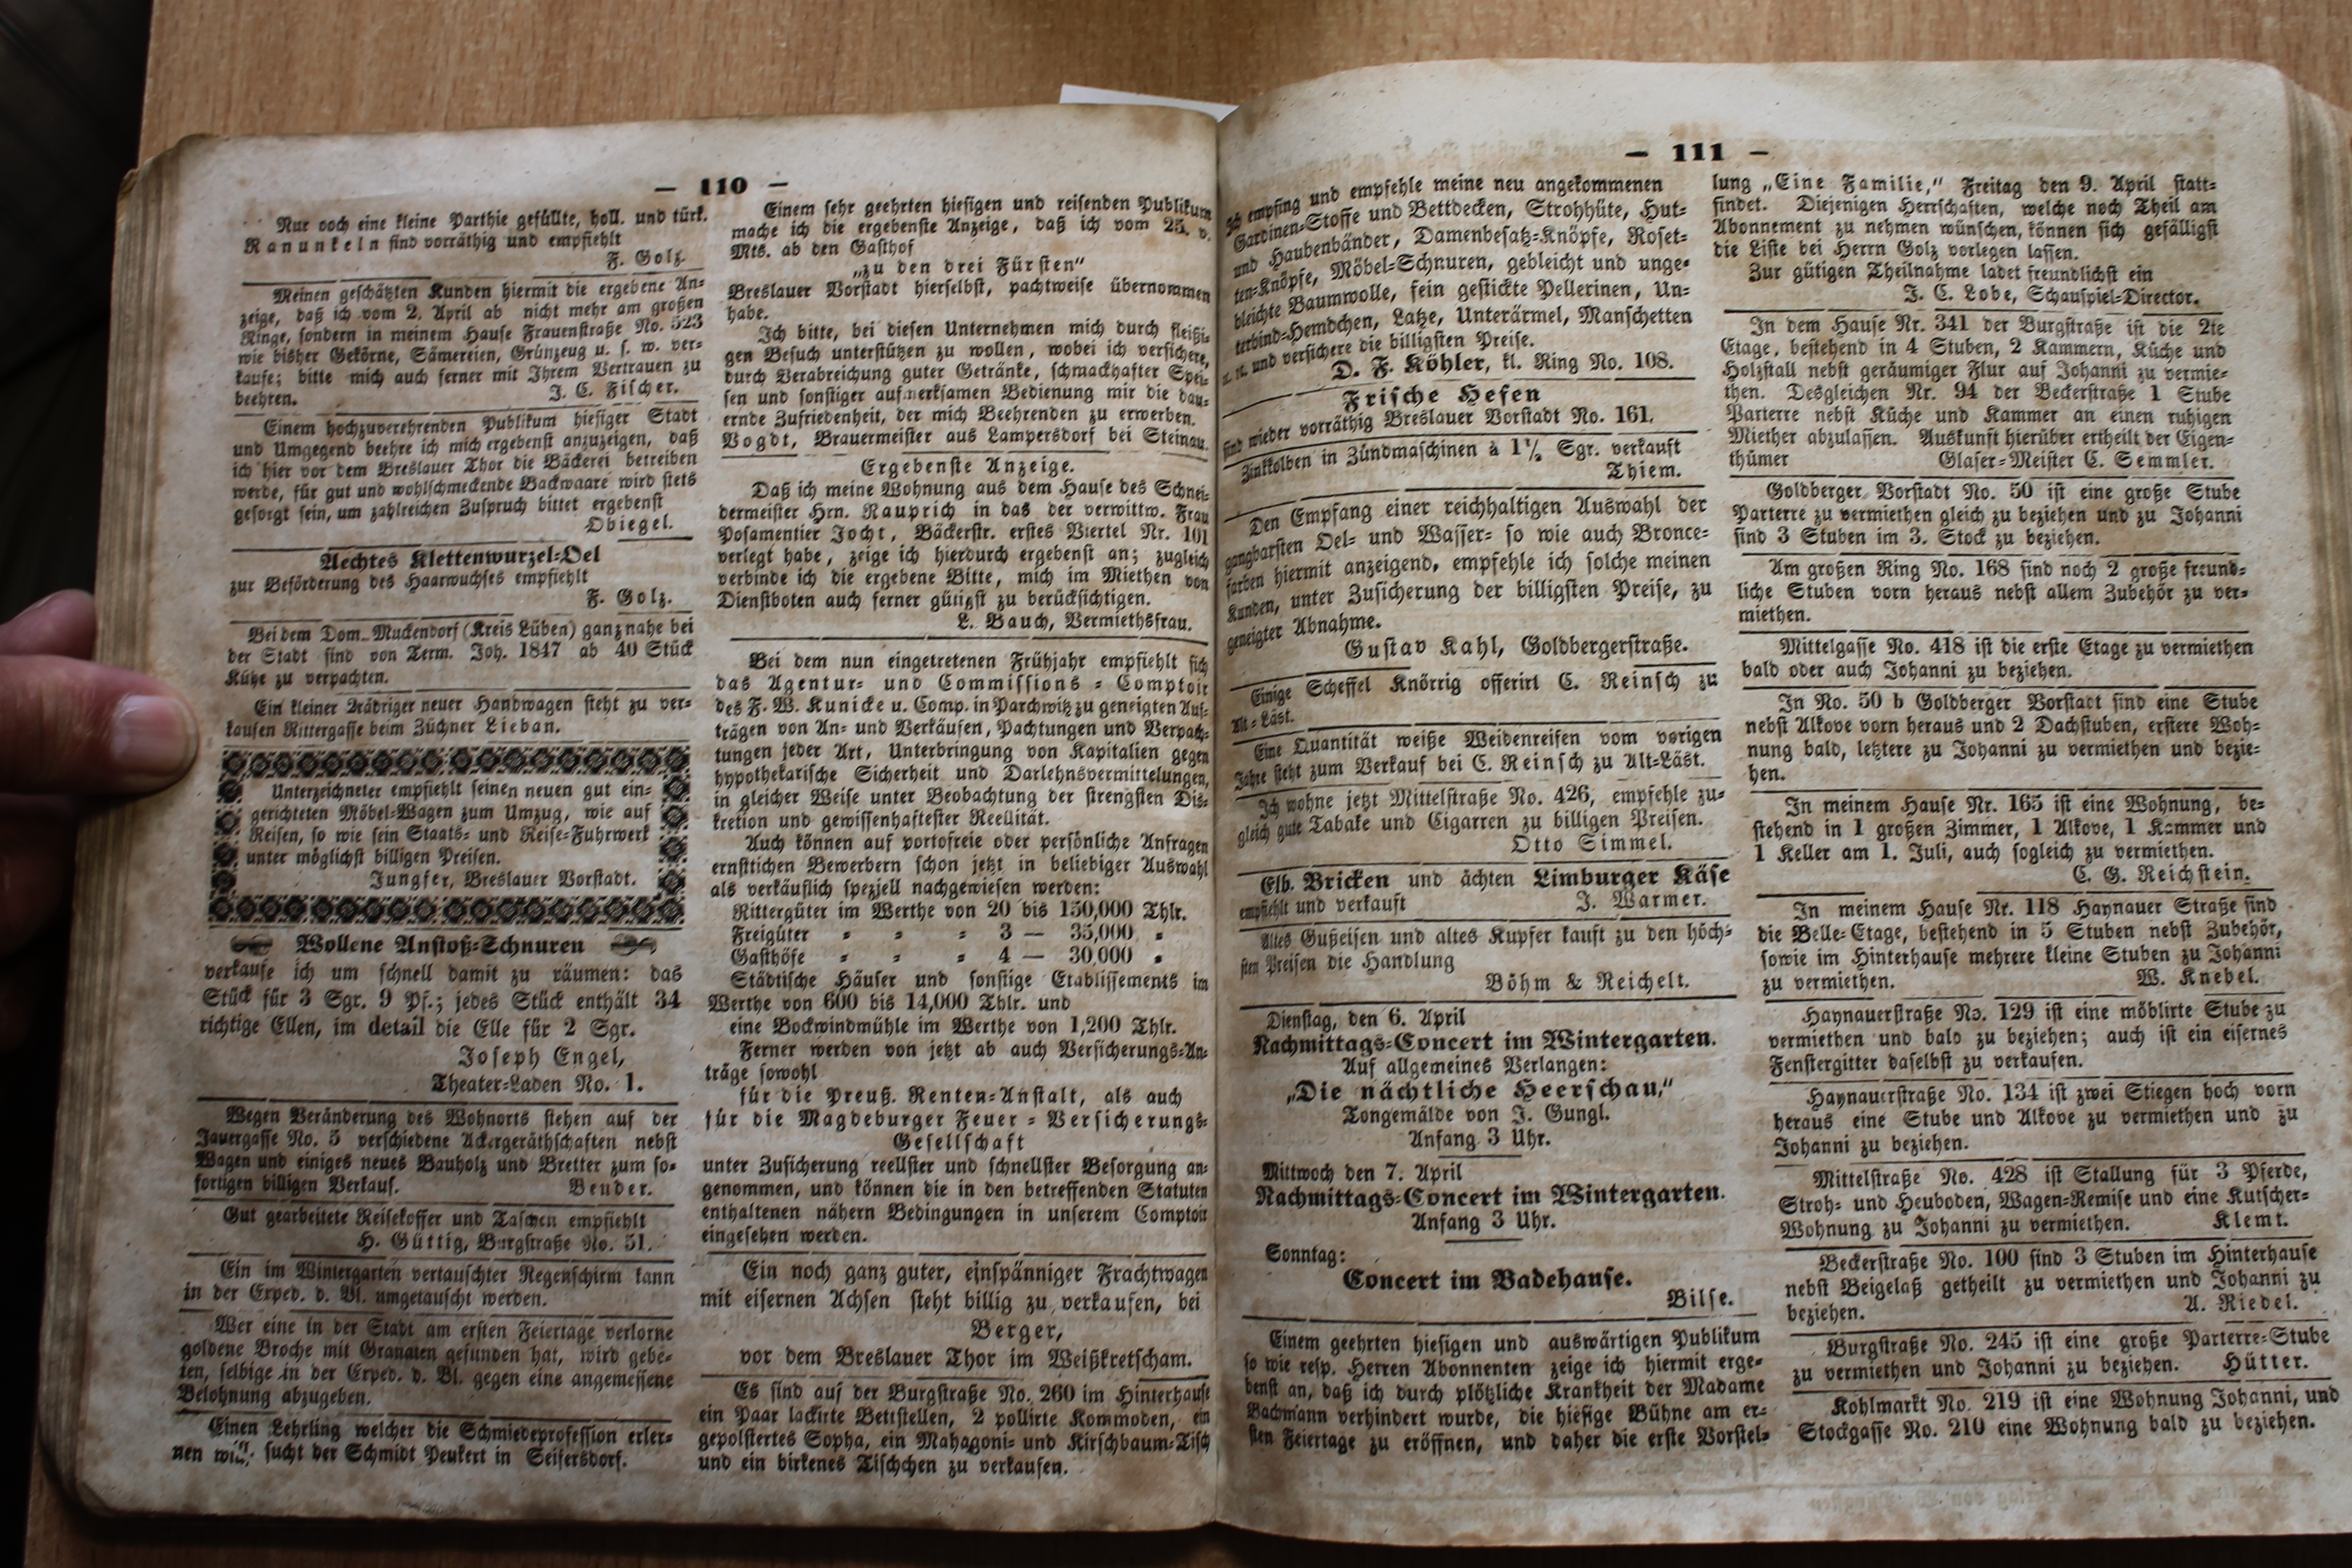 — 110 —
Nur noch eine kleine Parthie gefüllte, holl. und türk.
Ranunkeln sind vorräthig und empfiehlt
F. Golz.
Meinen geschätzten Kunden hiermit die ergebene An-
zeige, daß ich vom 2. April ab nicht mehr am großen
Ringe, sondern in meinem Hause Frauenstraße No. 523
wie bisher Gekörne, Sämereien, Grünzeug u. s. w. ver-
kaufe; bitte mich auch ferner mit Ihrem Vertrauen zu
beehren.
J. C. Fischer.
Einem hochzuverehrenden Publikum hiesiger Stadt
und Umgegend beehre ich mich ergebenst anzuzeigen, daß
ich hier vor dem Breslauer Thor die Bäckerei betreiben
werde, für gut und wohlschmeckende Backwaare wird stets
gesorgt sein, um zahlreichen Zuspruch bittet ergebenst
Obiegel.
Aechtes Klettenwurzel-Oel
zur Beförderung des Haarwuchses empfiehlt
F. Golz.
Bei dem Dom. Muckendorf (Kreis Lüben) ganz nahe bei
der Stadt sind von Term. Joh. 1847 ab 40 Stück
Kühe zu verpachten.
Ein kleiner 2rädriger neuer Handwagen steht zu ver-
kaufen Rittergasse beim Züchner Lieban.
Unterzeichneter empfiehlt seinen neuen gut ein-
gerichteten Möbel-Wagen zum Umzug, wie auf
Reisen, so wie sein Staats- und Reise-Fuhrwerk
unter möglichst billigen Preisen.
Jungfer, Breslauer Vorstadt.
Wollene Anstoß-Schnuren
verkaufe ich um schnell damit zu räumen: das
Stück für 3 Sgr. 9 Pf.; jedes Stück enthält 34
richtige Ellen, im detail die Elle für 2 Sgr.
Joseph Engel,
Theater-Laden No. 1.
Wegen Veränderung des Wohnorts stehen auf der
Jauergasse No. 5 verschiedene Ackergeräthschaften nebst
Wagen und einiges neues Bauholz und Bretter zum so-
fortigen billigen Verkauf. Bender.
Gut gearbeitete Reisekoffer und Taschen empfiehlt
H. Güttig, Burgstraße No. 51.
Ein im Wintergarten vertauschter Regenschirm kann
in der Exped. d. Bl. umgetauscht werden.
Wer eine in der Stadt am ersten Feiertage verlorne
goldene Broche mit Granaten gefunden hat, wird gebe-
ten, selbige in der Exped. d. Bl. gegen eine angemessene
Belohnung abzugeben.
Einen Lehrling welcher die Schmiedeprofession erler-
nen will, sucht der Schmidt Peukert in Seifersdorf.
Einem sehr geehrten hiesigen und reisenden Publikum
mache ich die ergebenste Anzeige, daß ich vom 25. v.
Mts. ab den Gasthof
„zu den drei Fürsten"
Breslauer Vorstadt hierselbst, pachtweise übernommen
habe.
Ich bitte, bei diesen Unternehmen mich durch fleißi-
gen Besuch unterstützen zu wollen, wobei ich versichere,
durch Verabreichung guter Getränke, schmackhafter Spei-
sen und sonstiger aufmerksamen Bedienung mir die dau-
ernde Zufriedenheit, der mich Beehrenden zu erwerben.
Vogdt, Brauermeister aus Lampersdorf bei Steinau.
Ergebenste Anzeige.
Daß ich meine Wohnung aus dem Hause des Schnei-
dermeister Hrn. Rauprich in das der verwittw. Frau
Posamentier Jocht, Bäckerstr. erstes Viertel Nr. 101
verlegt habe, zeige ich hierdurch ergebenst an; zugleich
verbinde ich die ergebene Bitte, mich im Miethen von
Dienstboten auch ferner gütigst zu berücksichtigen.
L. Bauch, Vermiethsfrau.
Bei dem nun eingetretenen Frühjahr empfiehlt sich
das Agentur- und Commissions-Comptoir
des F. W. Kunicke u. Comp. in Parchwitz zu geneigten Auf-
trägen von An- und Verkäufen, Pachtungen und Verpach-
tungen jeder Art, Unterbringung von Kapitalien gegen
hypothekarische Sicherheit und Darlehnsvermittelungen,
in gleicher Weise unter Beobachtung der strengsten Dis-
kretion und gewissenhaftester Reellität.
Auch können auf portofreie oder persönliche Anfragen
ernstlichen Bewerbern schon jetzt in beliebiger Auswahl
als verkäuflich speziell nachgewiesen werden:
Rittergüter im Werthe von 20 bis 150,000 Thlr.
Freigüter = = = 3 — 35,000 =
Gasthöfe = = = 4 — 30,000 =
Städtische Häuser und sonstige Etablissements im
Werthe von 600 bis 14,000 Thlr. und
eine Bockwindmühle im Werthe von 1,200 Thlr.
Ferner werden von jetzt ab auch Versicherungs-An-
träge sowohl
für die Preuß. Renten-Anstalt, als auch
für die Magdeburger Feuer-Versicherungs-
Gesellschaft
unter Zusicherung reellster und schnellster Besorgung an-
genommen, und können die in den betreffenden Statuten
enthaltenen nähern Bedingungen in unserem Comptoir
eingesehen werden.
Ein noch ganz guter, einspänniger Frachtwagen
mit eisernen Achsen steht billig zu verkaufen, bei
Berger,
vor dem Breslauer Thor im Weißkretscham.
Es sind auf der Burgstraße No. 260 im Hinterhause
ein Paar lackirte Bettstellen, 2 pollirte Kommoden, ein
gepolstertes Sopha, ein Mahagoni- und Kirschbaum-Tisch
und ein birkenes Tischchen zu verkaufen.
— 111 —
Ich empfing und empfehle meine neu angekommenen
Gardinen-Stoffe und Bettdecken, Strohhüte, Hut-
und Haubenbänder, Damenbesatz-Knöpfe, Roset-
ten-Knöpfe, Möbel-Schnuren, gebleicht und unge-
bleichte Baumwolle, fein gestickte Pellerinen, Un-
terbind-Hemdchen, Latze, Unterärmel, Manschetten
ꝛc. ꝛc. und versichere die billigsten Preise.
D. F. Köhler, kl. Ring No. 108.
Frische Hefen
sind wieder vorräthig Breslauer Vorstadt No. 161.
Zinkkolben in Zündmaschinen à 1½ Sgr. verkauft
Thiem.
Den Empfang einer reichhaltigen Auswahl der
gangbarsten Oel- und Wasser- so wie auch Bronce-
farben hiermit anzeigend, empfehle ich solche meinen
Kunden, unter Zusicherung der billigsten Preise, zu
geneigter Abnahme.
Gustav Kahl, Goldbergerstraße.
Einige Scheffel Knörrig offerirt C. Reinsch zu
Alt-Läst.
Eine Quantität weiße Weidenreifen vom vorigen
Jahre steht zum Verkauf bei C. Reinsch zu Alt-Läst.
Ich wohne jetzt Mittelstraße No. 426, empfehle zu-
gleich gute Tabake und Cigarren zu billigen Preisen.
Otto Simmel.
Elb. Bricken und ächten Limburger Käse
empfiehlt und verkauft J. Warmer.
Altes Gußeisen und altes Kupfer kauft zu den höch-
sten Preisen die Handlung
Böhm & Reichelt.
Dienstag, den 6. April
Nachmittags-Concert im Wintergarten.
Auf allgemeines Verlangen:
„Die nächtliche Heerschau,"
Tongemälde von J. Gungl.
Anfang 3 Uhr.
Mittwoch den 7. April
Nachmittags-Concert im Wintergarten.
Anfang 3 Uhr.
Sonntag:
Concert im Badehause.
Bilse.
Einem geehrten hiesigen und auswärtigen Publikum
so wie resp. Herren Abonnenten zeige ich hiermit erge-
benst an, daß ich durch plötzliche Krankheit der Madame
Bachmann verhindert wurde, die hiesige Bühne am er-
sten Feiertage zu eröffnen, und daher die erste Vorstel-
lung „Eine Familie," Freitag den 9. April statt-
findet. Diejenigen Herrschaften, welche noch Theil am
Abonnement zu nehmen wünschen, können sich gefälligst
die Liste bei Herrn Golz vorlegen lassen.
Zur gütigen Theilnahme ladet freundlichst ein
J. C. Lobe, Schauspiel-Director.
In dem Hause Nr. 341 der Burgstraße ist die 2te
Etage, bestehend in 4 Stuben, 2 Kammern, Küche und
Holzstall nebst geräumiger Flur auf Johanni zu vermie-
then. Desgleichen Nr. 94 der Beckerstraße 1 Stube
Parterre nebst Küche und Kammer an einen ruhigen
Miether abzulassen. Auskunft hierüber ertheilt der Eigen-
thümer Glaser-Meister C. Semmler.
Goldberger Vorstadt No. 50 ist eine große Stube
Parterre zu vermiethen gleich zu beziehen und zu Johanni
sind 3 Stuben im 3. Stock zu beziehen.
Am großen Ring No. 168 sind noch 2 große freund-
liche Stuben vorn heraus nebst allem Zubehör zu ver-
miethen.
Mittelgasse No. 418 ist die erste Etage zu vermiethen
bald oder auch Johanni zu beziehen.
In No. 50 b Goldberger Vorstadt sind eine Stube
nebst Alkove vorn heraus und 2 Dachstuben, erstere Woh-
nung bald, letztere zu Johanni zu vermiethen und bezie-
hen.
In meinem Hause Nr. 165 ist eine Wohnung, be-
stehend in 1 großen Zimmer, 1 Alkove, 1 Kammer und
1 Keller am 1. Juli, auch sogleich zu vermiethen.
C. G. Reichstein.
In meinem Hause Nr. 118 Haynauer Straße sind
die Belle-Etage, bestehend in 5 Stuben nebst Zubehör,
sowie im Hinterhause mehrere kleine Stuben zu Johanni
zu vermiethen. W. Knebel.
Haynauerstraße No. 129 ist eine möblirte Stube zu
vermiethen und bald zu beziehen; auch ist ein eisernes
Fenstergitter daselbst zu verkaufen.
Haynauerstraße No. 134 ist zwei Stiegen hoch vorn
heraus eine Stube und Alkove zu vermiethen und zu
Johanni zu beziehen.
Mittelstraße No. 428 ist Stallung für 3 Pferde,
Stroh- und Heuboden, Wagen-Remise und eine Kutscher-
Wohnung zu Johanni zu vermiethen. Klemt.
Beckerstraße No. 100 sind 3 Stuben im Hinterhause
nebst Beigelaß getheilt zu vermiethen und Johanni zu
beziehen. A. Riedel.
Burgstraße No. 245 ist eine große Parterre-Stube
zu vermiethen und Johanni zu beziehen. Hütter.
Kohlmarkt No. 219 ist eine Wohnung Johanni, und
Stockgasse No. 210 eine Wohnung bald zu beziehen.